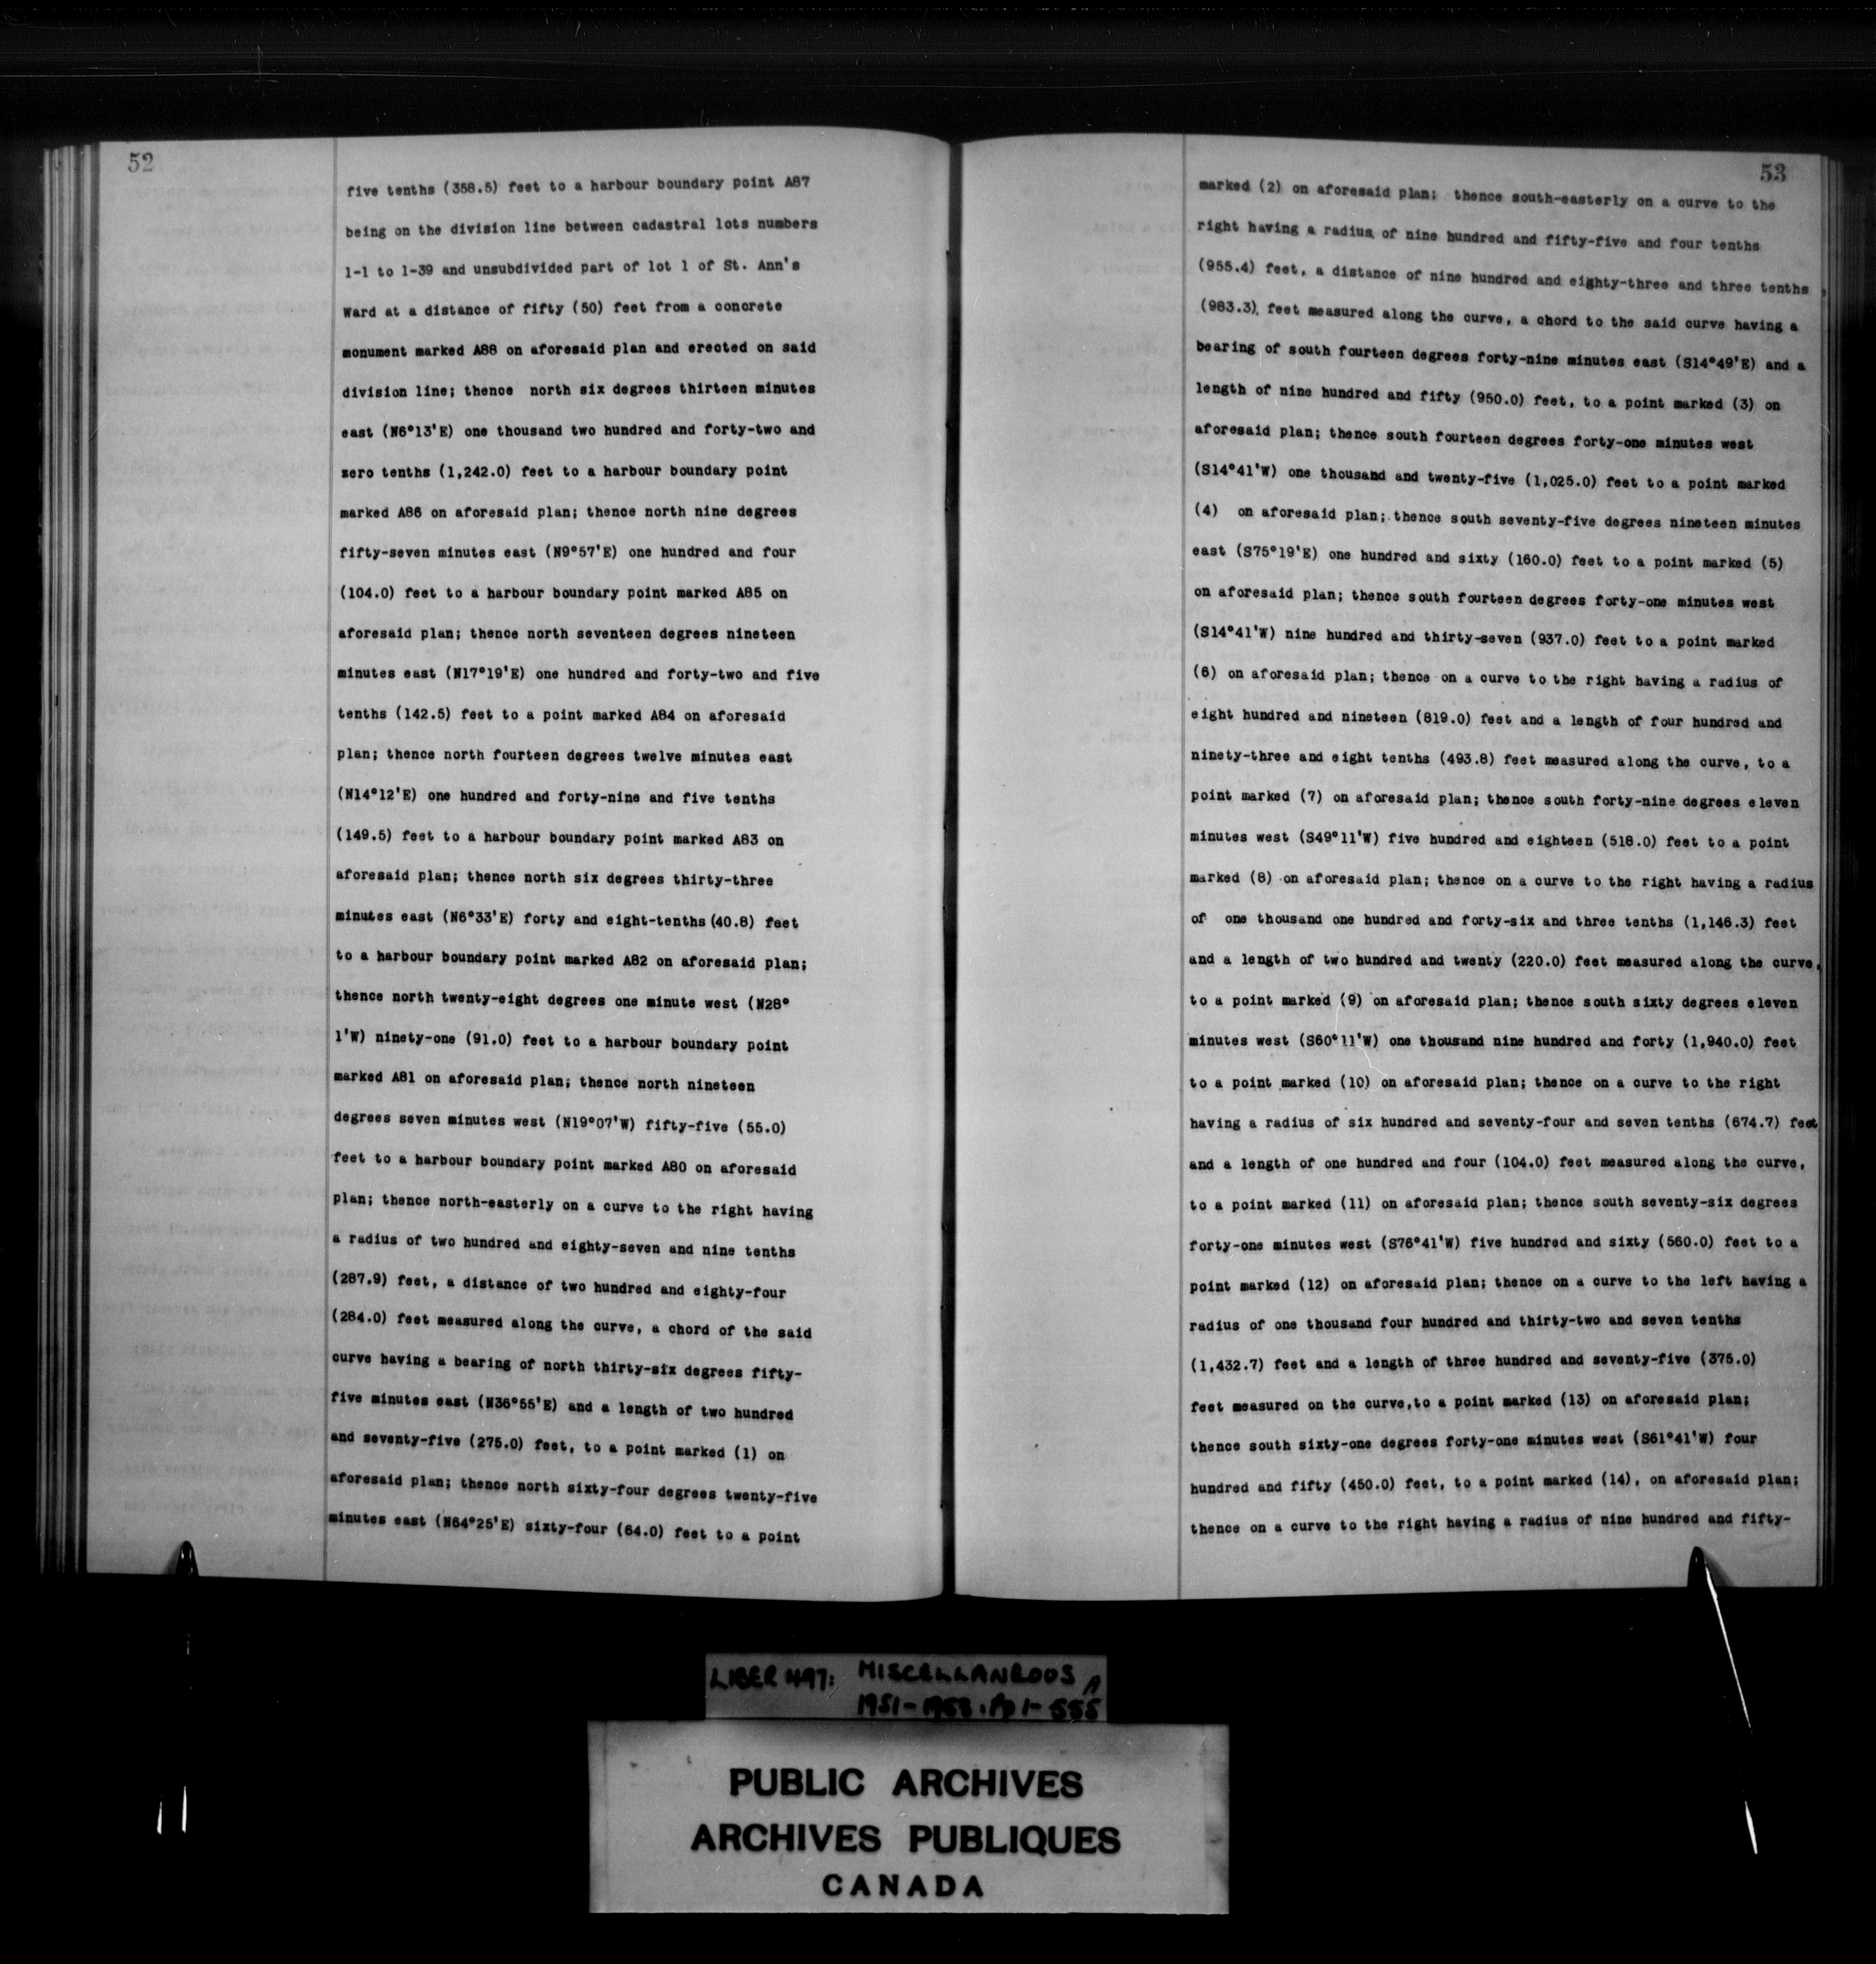 52
five tenths (358.5) feet to a harbour boundary point A87
being on the division line between cadastral lots numbers
1-1 to 1-39 and unsubdivided part of lot 1 of St. Ann's
Ward at a distance of fifty (50) feet from a concrete
monument marked A88 on aforesaid plan and erected on said
division line; thence north six degrees thirteen minutes
east (N6°13'E) one thousand two hundred and forty-two and
zero tenths (1,242.0) feet to a harbour boundary point
marked A86 on aforesaid plan; thence north nine degrees
fifty-seven minutes east (N9°57'E) one hundred and four
(104.0) feet to a harbour boundary point marked A85 on
aforesaid plan; thence north seventeen degrees nineteen
minutes east (N17°19'E) one hundred and forty-two and five
tenths (142.5) feet to a point marked A84 on aforesaid
plan; thence north fourteen degrees twelve minutes east
(N14°12'E) one hundred and forty-nine and five tenths
(149.5) feet to a harbour boundary point marked A83 on
aforesaid plan; thence north six degrees thirty-three
minutes east (N6°33'E) forty and eight-tenths (40.8) feet
to a harbour boundary point marked A82 on aforesaid plan;
thence north twenty-eight degrees one minute west (N28°
1'W) ninety-one (91.0) feet to a harbour boundary point
marked A81 on aforesaid plan; thence north nineteen
degrees seven minutes west (N19°07'W) fifty-five (55.0)
feet to a harbour boundary point marked A80 on aforesaid
plan; thence north-easterly on a curve to the right having
a radius of two hundred and eighty-seven and nine tenths
(287.9) feet, a distance of two hundred and eighty-four
(284.0) feet measured along the curve, a chord of the said
curve having a bearing of north thirty-six degrees fifty-
five minutes east (N36°55'E) and a length of two hundred
and seventy-five (275.0) feet, to a point marked (1) on
aforesaid plan; thence north sixty-four degrees twenty-five
minutes east (N64°25'E) sixty-four (64.0) feet to a point
53
marked (2) on aforesaid plan; thence south-easterly on a curve to the
right having a radius of nine hundred and fifty-five and four tenths
(955.4) feet, a distance of nine hundred and eighty-three and three tenths
(983.3) feet measured along the curve, a chord to the said curve having a
bearing of south fourteen degrees forty-nine minutes east (S14°49'E) and a
length of nine hundred and fifty (950.0) feet, to a point marked (3) on
aforesaid plan; thence south fourteen degrees forty-one minutes west
(S14°41'W) one thousand and twenty-five (1,025.0) feet to a point marked
(4) on aforesaid plan; thence south seventy-five degrees nineteen minutes
east (S75°19'E) one hundred and sixty (160.0) feet to a point marked (5)
on aforesaid plan; thence south fourteen degrees forty-one minutes west
(S14°41'W) nine hundred and thirty-seven (937.0) feet to a point marked
(6) on aforesaid plan; thence on a curve to the right having a radius of
eight hundred and nineteen (819.0) feet and a length of four hundred and
ninety-three and eight tenths (493.8) feet measured along the curve, to a
point marked (7) on aforesaid plan; thence south forty-nine degrees eleven
minutes west (S49°11'W) five hundred and eighteen (518.0) feet to a point
marked (8) on aforesaid plan; thence on a curve to the right having a radius
of one thousand one hundred and forty-six and three tenths (1,146.3) feet
and a length of two hundred and twenty (220.0) feet measured along the curve,
to a point marked (9) on aforesaid plan; thence south sixty degrees eleven
minutes west (S60°11'W) one thousand nine hundred and forty (1,940.0) feet
to a point marked (10) on aforesaid plan; thence on a curve to the right
having a radius of six hundred and seventy-four and seven tenths (674.7) feet
and a length of one hundred and four (104.0) feet measured along the curve,
to a point marked (11) on aforesaid plan; thence south seventy-six degrees
forty-one minutes west (S76°41'W) five hundred and sixty (560.0) feet to a
point marked (12) on aforesaid plan; thence on a curve to the left having a
radius of one thousand four hundred and thirty-two and seven tenths
(1,432.7) feet and a length of three hundred and seventy-five (375.0)
feet measured on the curve,to a point marked (13) on aforesaid plan;
thence south sixty-one degrees forty-one minutes west (S61°41'W) four
hundred and fifty (450.0) feet, to a point marked (14), on aforesaid plan;
thence on a curve to the right having a radius of nine hundred and fifty-
LIBER 497: MISCELLANEOUS A
1951-1953. Pp 1-555
PUBLIC ARCHIVES
ARCHIVES PUBLIQUES
CANADA